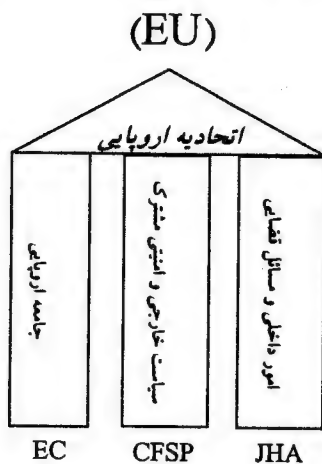 (EU)
اتحادیه اروپایی
جامعه اروپایی
سیاست خارجی و امنیتی مشترک
امور داخلی و مسائل قضایی
EC
CFSP
JHA